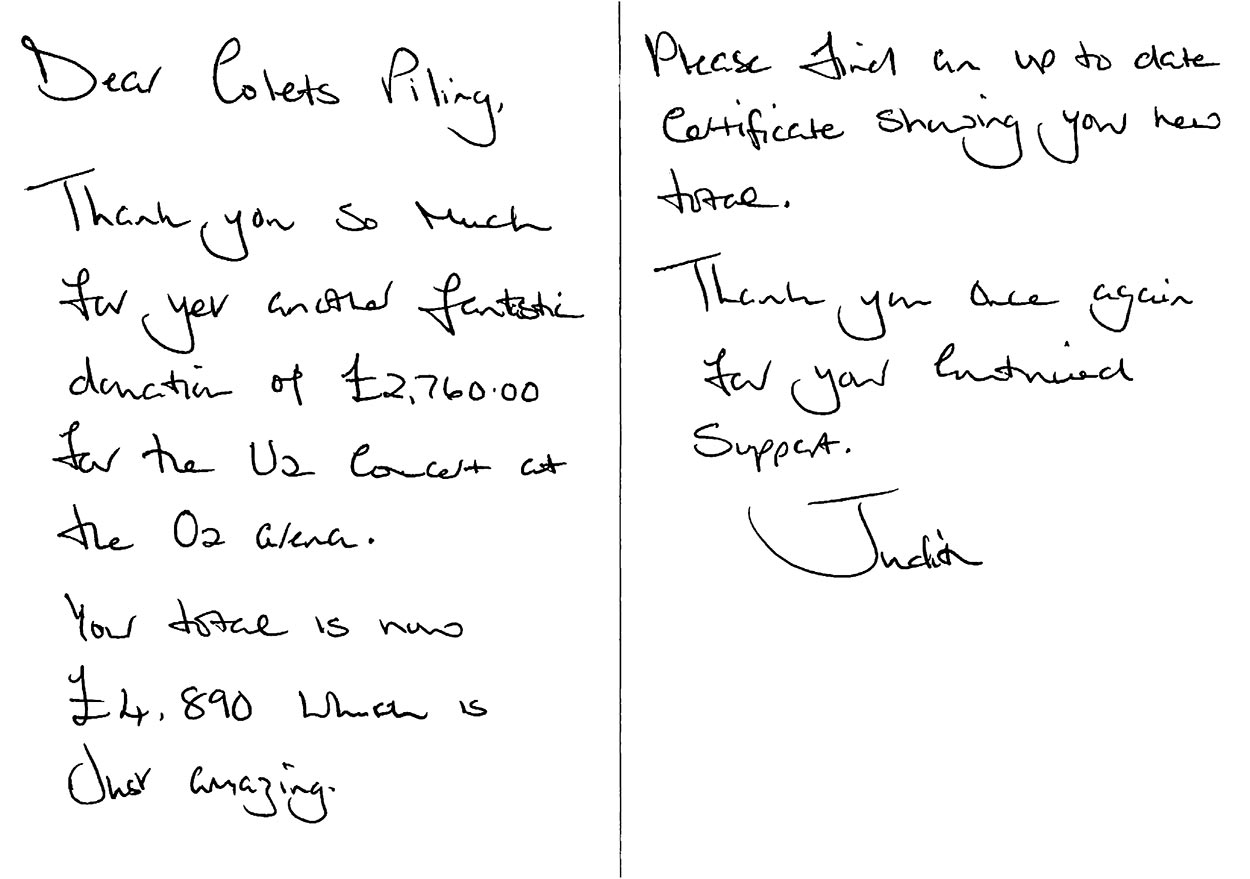 Dear Colets Piling,
Thank you so much
for yet another fantastic
donation of £2,760.00
for the U2 Concert at
the O2 arena.
Your total is now
£4,890 which is
Just amazing.
Please find an up to date
Certificate showing your new
total.
Thank you once again
for your Continued
Support.
Judith